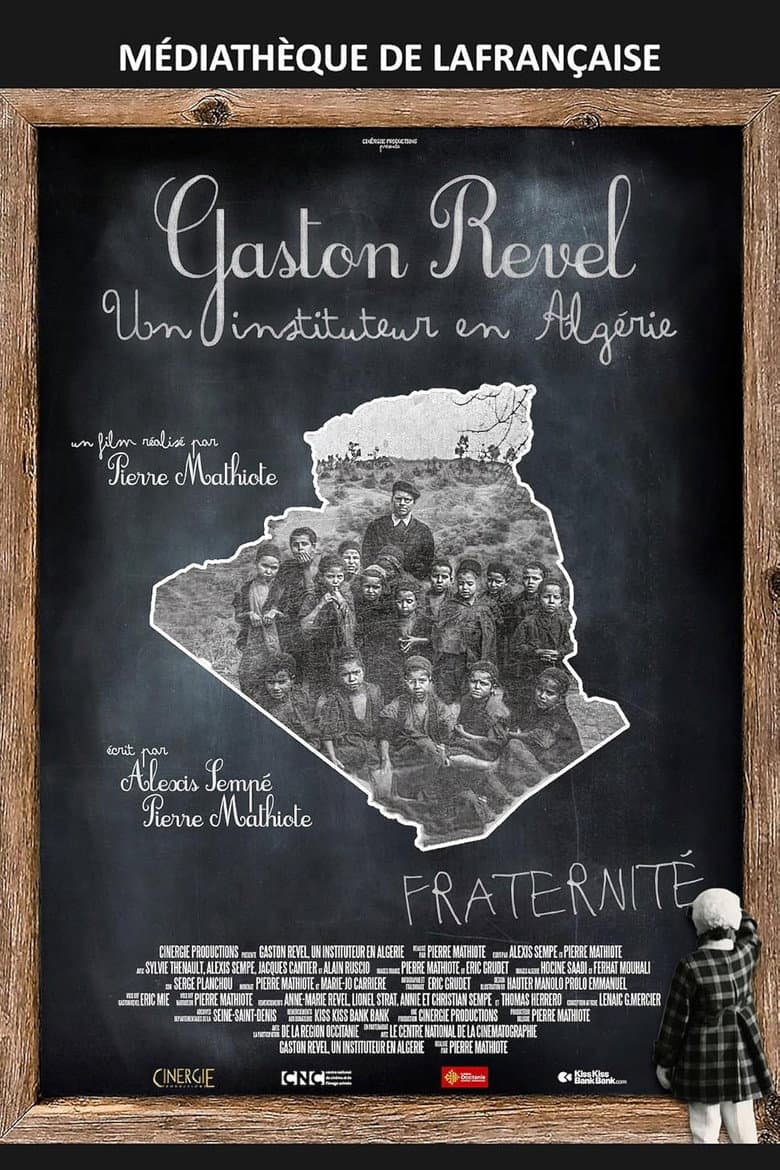 MÉDIATHÈQUE DE LAFRANÇAISE
CINÉRGIE PRODUCTIONS
présente
Gaston Revel
Un instituteur en Algérie
un film réalisé par
Pierre Mathiote
écrit par
Alexis Sempé
Pierre Mathiote
FRATERNITÉ
CINERGIE PRODUCTIONS PRÉSENTE GASTON REVEL, UN INSTITUTEUR EN ALGERIE RÉALISÉ PAR PIERRE MATHIOTE ÉCRIT PAR ALEXIS SEMPE ET PIERRE MATHIOTE
AVEC SYLVIE THENAULT, ALEXIS SEMPE, JACQUES CANTIER ET ALAIN RUSCIO IMAGES FRANCE PIERRE MATHIOTE ET ERIC GRUDET IMAGES ALGERIE HOCINE SAADI ET FERHAT MOUHALI
SON SERGE PLANCHOU MONTAGE PIERRE MATHIOTE ET MARIE-JO CARRIERE ERIC GRUDET DESIGN ILLUSTRATION HAUTER MANOLO PROLO EMMANUEL
VOIX OFF GASTON REVEL ERIC MIE VOIX OFF PIERRE MATHIOTE REMERCIEMENTS ANNE-MARIE REVEL, LIONEL STRAT, ANNIE ET CHRISTIAN SEMPE ET THOMAS HERRERO LENAIC G.MERCIER
ARCHIVES DEPARTEMENTALES DE LA SEINE-SAINT-DENIS KISS KISS BANK BANK UNE PRODUCTION CINERGIE PRODUCTIONS PIERRE MATHIOTE
AVEC LA PARTICIPATION DE LA REGION OCCITANIE EN PARTENARIAT AVEC LE CENTRE NATIONAL DE LA CINEMATOGRAPHIE
GASTON REVEL, UN INSTITUTEUR EN ALGERIE RÉALISÉ PAR PIERRE MATHIOTE
CINERGIE
PRODUCTIONS
CNC centre national du cinéma et de l'image animée
Occitanie
KissKiss
BankBank.com